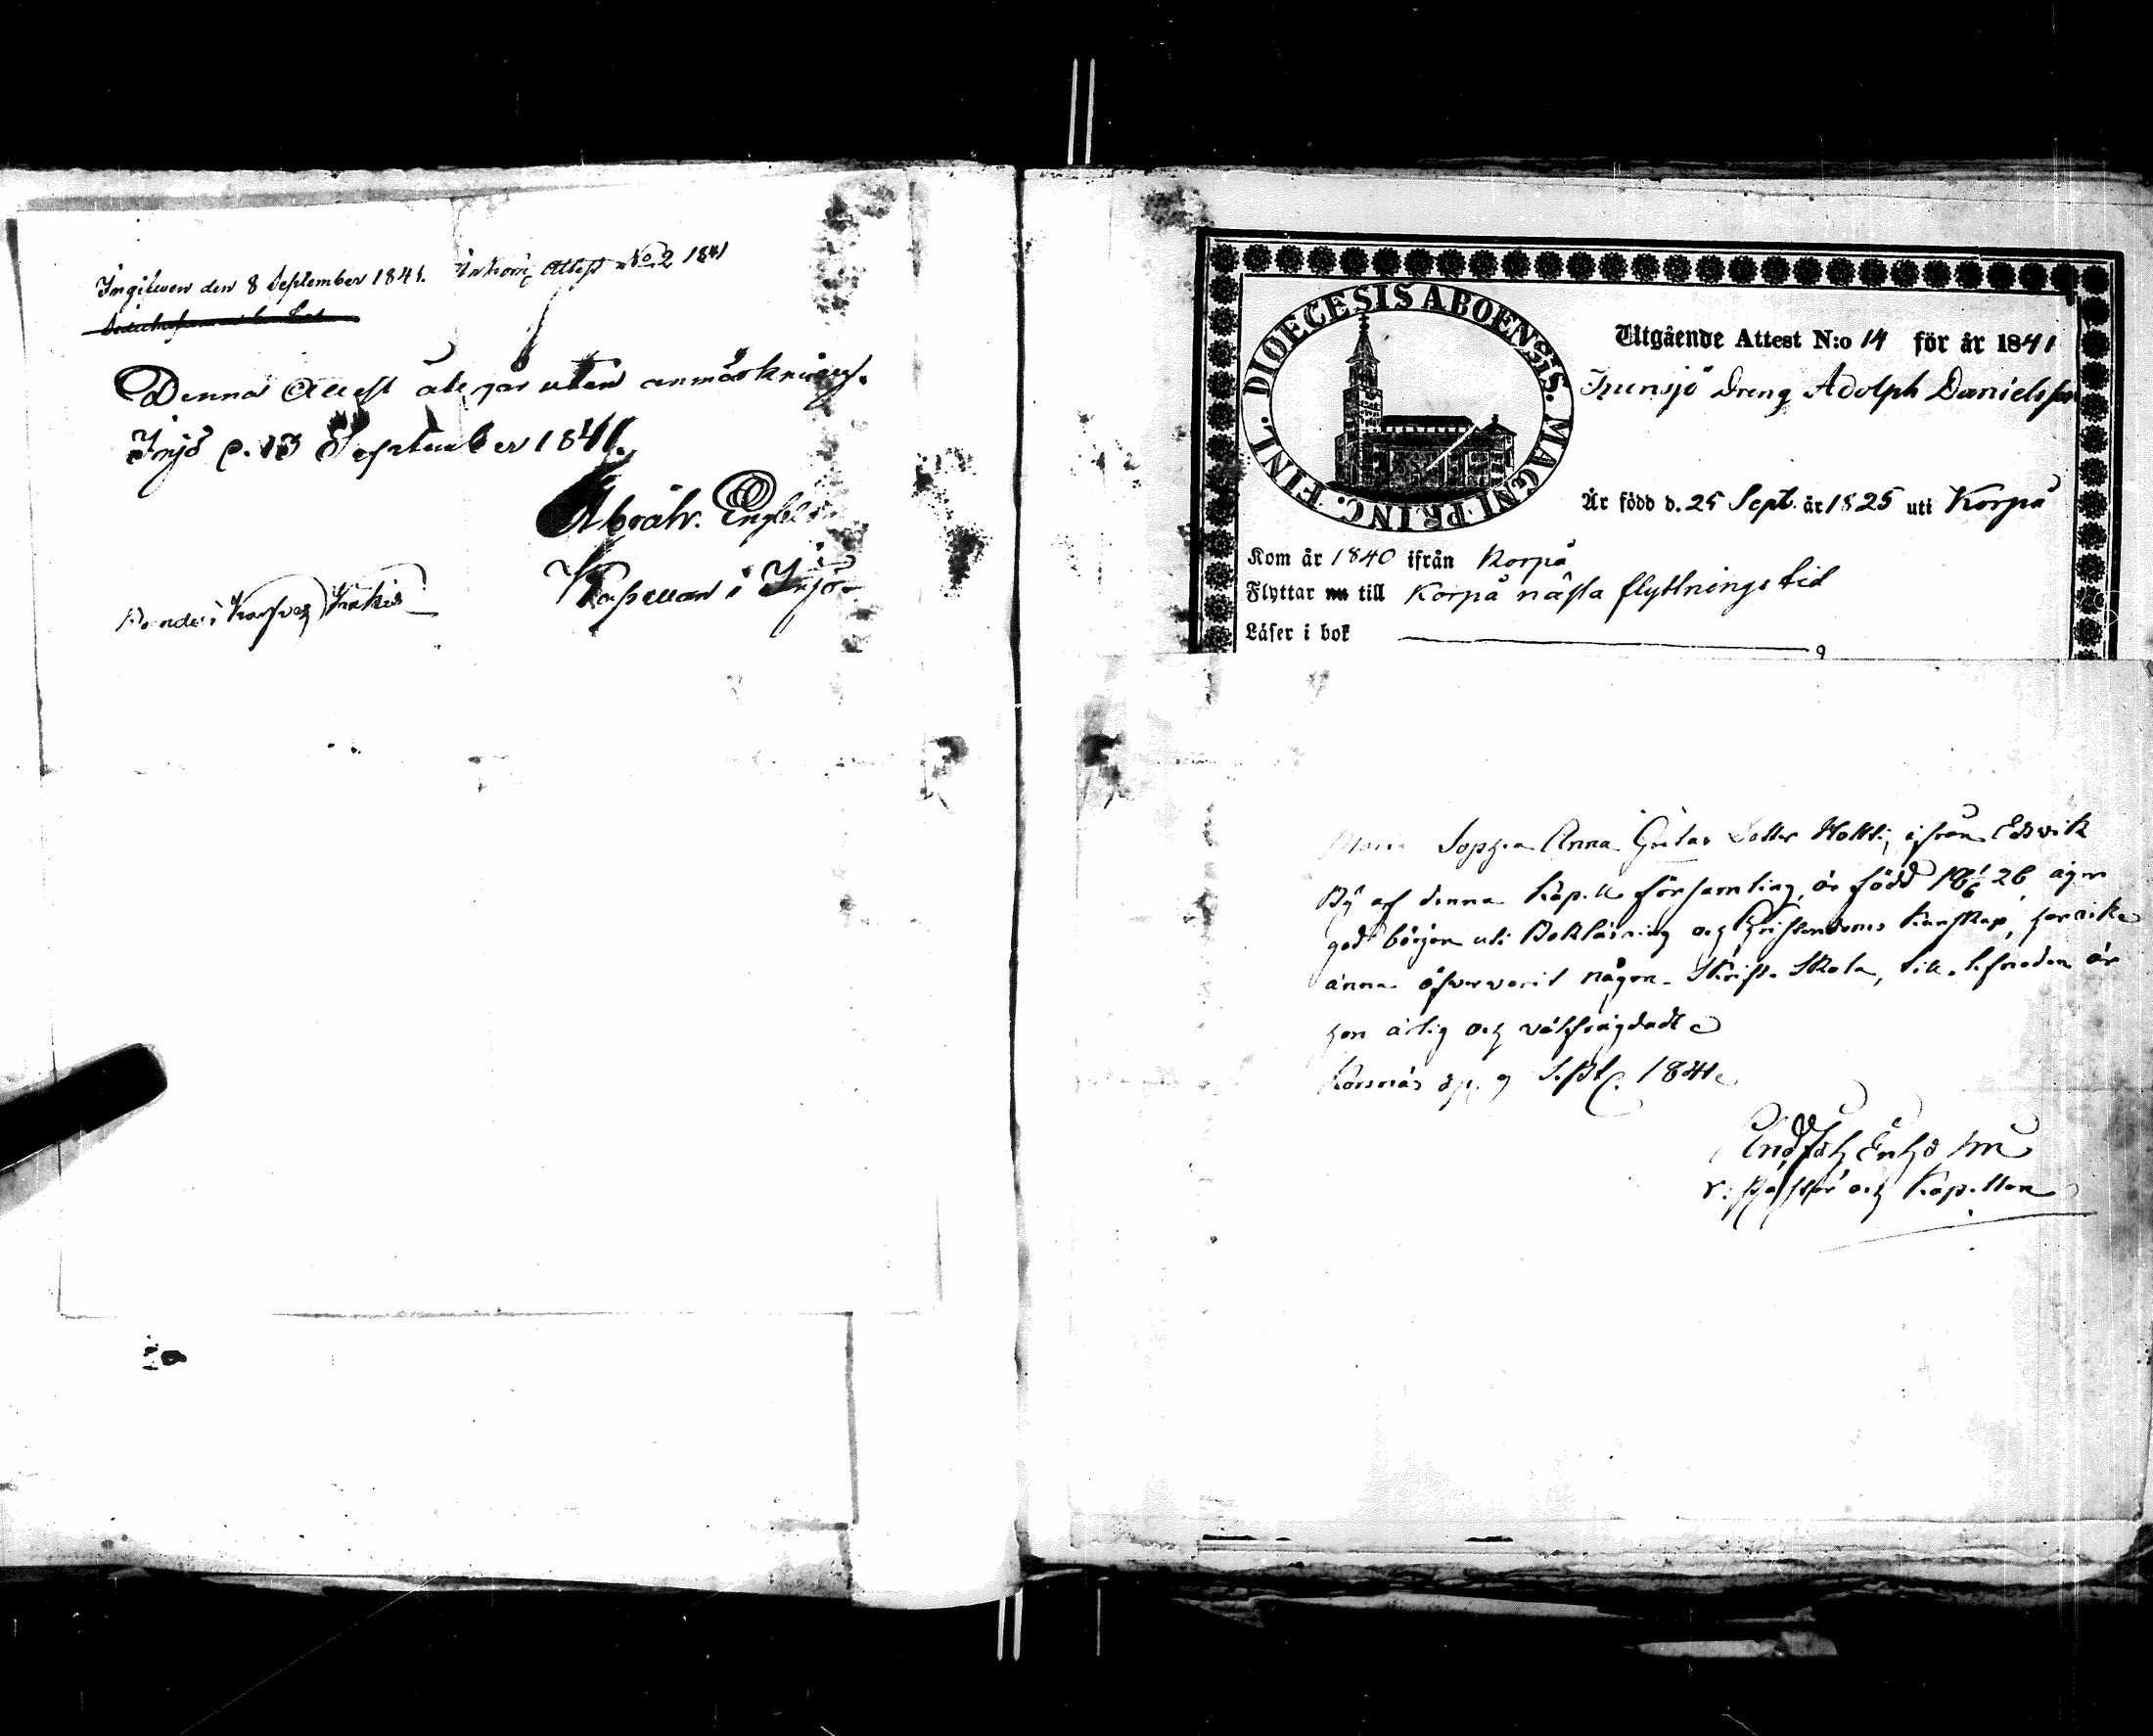 Ingifwen den 8 September 1841. Inkom Attest No 2 1841
Denna Attest återgår utan anmärkning.
Iniö d. 13 September 1841.
Abrah. Engbl
Kapellan i Iniö
DIOECESIS ABOENSIS. MAGNI PRINC. FINL.
Utgående Attest N:o 14 för år 1841
Dreng Adolph Danielsson
Är född d. 25 Sept. år 1825 uti Korpo
Kom år 1840 ifrån Korpo
Flyttar nu till Korpo nästa flyttningstid
Läser i bok
Maria Sophia Anna Greta Dotter Holtti, ifrån Edsvik
By af denna Kapell församling, är född 18 26 äger
god början uti Bokläsning och Christendoms Kunskap, har icke
ännu öfvervarit någon Skrift Skola, till lefnaden är
hon ärlig och välfrägdad
Korsnäs d. 9 Sept. 1841
Enholm
v. Pastor och Kapellan